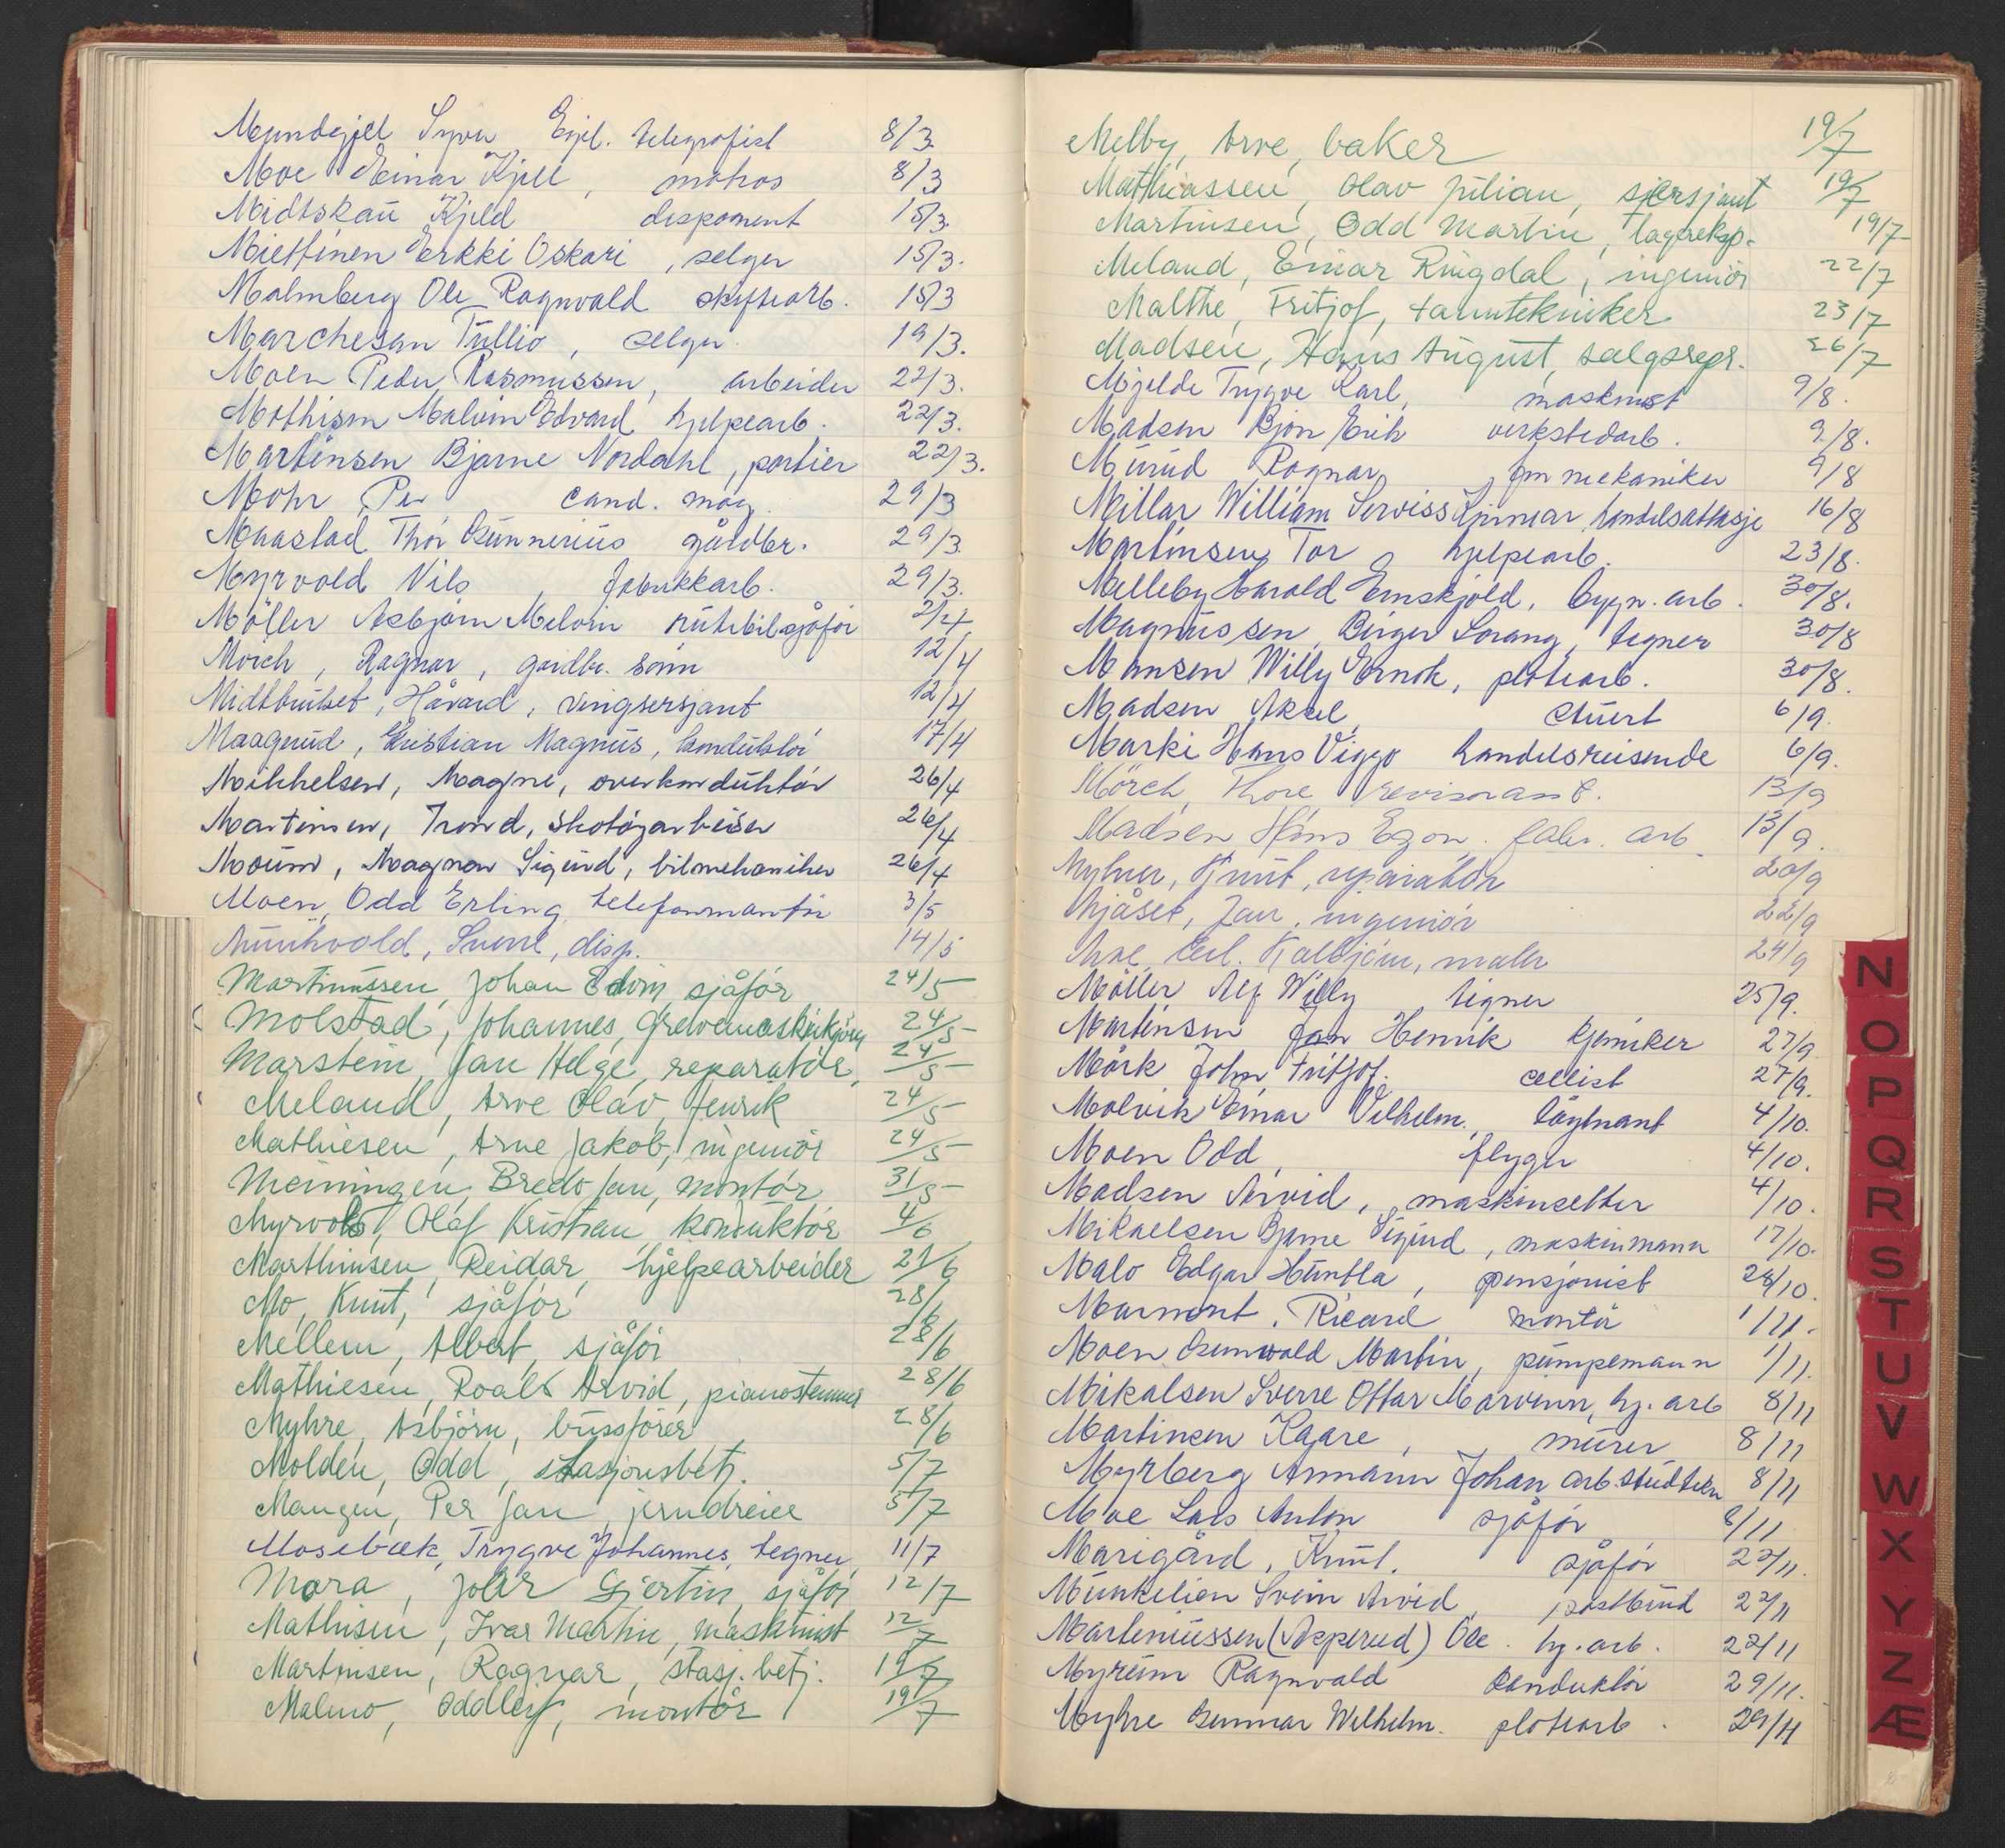 Mundgjel Syver Egil. telegrafist 8/3
Moe Einar Kjell, matros 8/3
Midtskau Kjeld disponent 15/3
Miettinen Erkki Oskari, selger 15/3.
Malmberg Ole Ragnvald skiftearb. 15/3
Marchesan Tullio, selger 19/3.
Moen Peder Rasmussen, arbeider 22/3.
Mathisen Malvin Edvard hjelpearb. 22/3.
Martinsen Bjarne Nordahl, portier 22/3.
Mohr, Per cand. mag. 29/3
Maastad Thor Gunnerius gårdbr. 29/3.
Myrvold Nils, fabrikkarb. 29/3.
Möller Asbjörn Melvin rutebilsjåför 2/4
Mörch, Ragnar, gårdbr. sönn 12/4
Midtbruket, Håvard, vingsersjant 12/4
Maagerud, Kristian Magnus, konduktör 17/4
Mikkelsen, Magne, overkonduktör 26/4
Martinsen, Trond, skotöyarbeider 26/4
Moum, Magnar Sigurd, bilmekaniker 26/4
Moen, Odd Erling telefonmontör 3/5
Munkvold, Sverre, disp. 14/5
Martinussen, Johan Edvin, sjåför 24/5
Molstad, Johannes, gravemaskinkjörer 24/5
Marstein, Jan Helge, reparatör, 24/5
Meland, Arve Olav, fenrik 24/5
Mathiesen, Arne Jakob, ingeniör 24/5
Meiningen, Bredo Jan, montör 31/5
Myrvold, Olaf Kristian, konduktör 4/6
Marthinsen, Reidar, hjelpearbeider 21/6
Mo, Knut, sjåför 28/6
Mellem, Albert, sjåför 28/6
Mathiesen, Roald Arvid, pianostemmer 28/6
Myhre, Asbjörn, bussförer 28/6
Molden, Odd, stasjonsbetj. 5/7
Mangen, Per Jan, jerndreier 5/7
Mosebæk, Trygve Johannes, tegner 11/7
Mora, Joar Gjertin, sjåför 12/7
Mathisen, Ivar Martin, maskinist 12/7
Martinsen, Ragnar, stasj. betj. 19/7
Malmo, Oddleif, montör 19/7
Melby, Arve, baker 19/7
Mathiassen, Olav Julian, sjersjant 19/7
Martinsen, Odd Martin, lagereksp. 19/7
Meland, Einar Ringdal, ingeniör 22/7
Malthe, Fritjof, tanntekniker 23/7
Madsen, Hans August, salgsrepr. 26/7
Mjelde Trygve Karl, maskinist 9/8.
Madsen Björn Erik verkstedarb. 9/8.
Murud Ragnar, fin mekaniker 9/8
Millar William Serviss Hjinmar handelsattasje 16/8
Martinsen, Tor, hjelpearb. 23/8.
Melleby Harald Ernskjold, bygn. arb. 30/8.
Magnussen, Birger Lorang, tegner 30/8
Monsen Willy Ernok, platearb. 30/8.
Madsen Aksel, stuert 6/9.
Marki Hans Viggo handelsreisende 6/9.
Mörch, Thore revisorasst. 13/9
Madsen Hans Egon. fabr. arb. 13/9.
Myhrer, Knut, reparatör 20/9
Mjåset, Jan, ingeniör 22/9
Carl Kalbjörn, maler 24/9
Möller Alf Willy tegner 25/9.
Martinsen Jan Henrik kjemiker 27/9.
Mörk John Fritjof. cellist 27/9.
Molvik Einar Vilhelm, löytnant 4/10.
Moen Odd, flyger 4/10.
Madsen Arvid, maskinsetter 4/10.
Mikaelsen Bjarne Sigurd, maskinmann 17/10.
Malo Edgar Huntla, pensjonist 28/10.
Marmont, Ricard montör 1/11.
Moen Osenwald Martin, pumpemann 1/11.
Mikalsen Sverre Ottar Marvinn, hj. arb 8/11
Martinsen Kaare, murer 8/11
Myrberg Armann Johan arb. studteren 8/11
Moe Lars Anton sjåför 8/11
Marigård, Knut. sjåför 22/11.
Munkelien Svein Arvid, postbud 22/11
Martiniussen (Asperud) Ole. hj. arb. 22/11
Myreim Ragnvald konduktör 29/11.
Myhre Gunnar Wilhelm. platearb. 29/11
N
O
P
Q
R
S
T
U
V
W
X
Y
Z
Æ